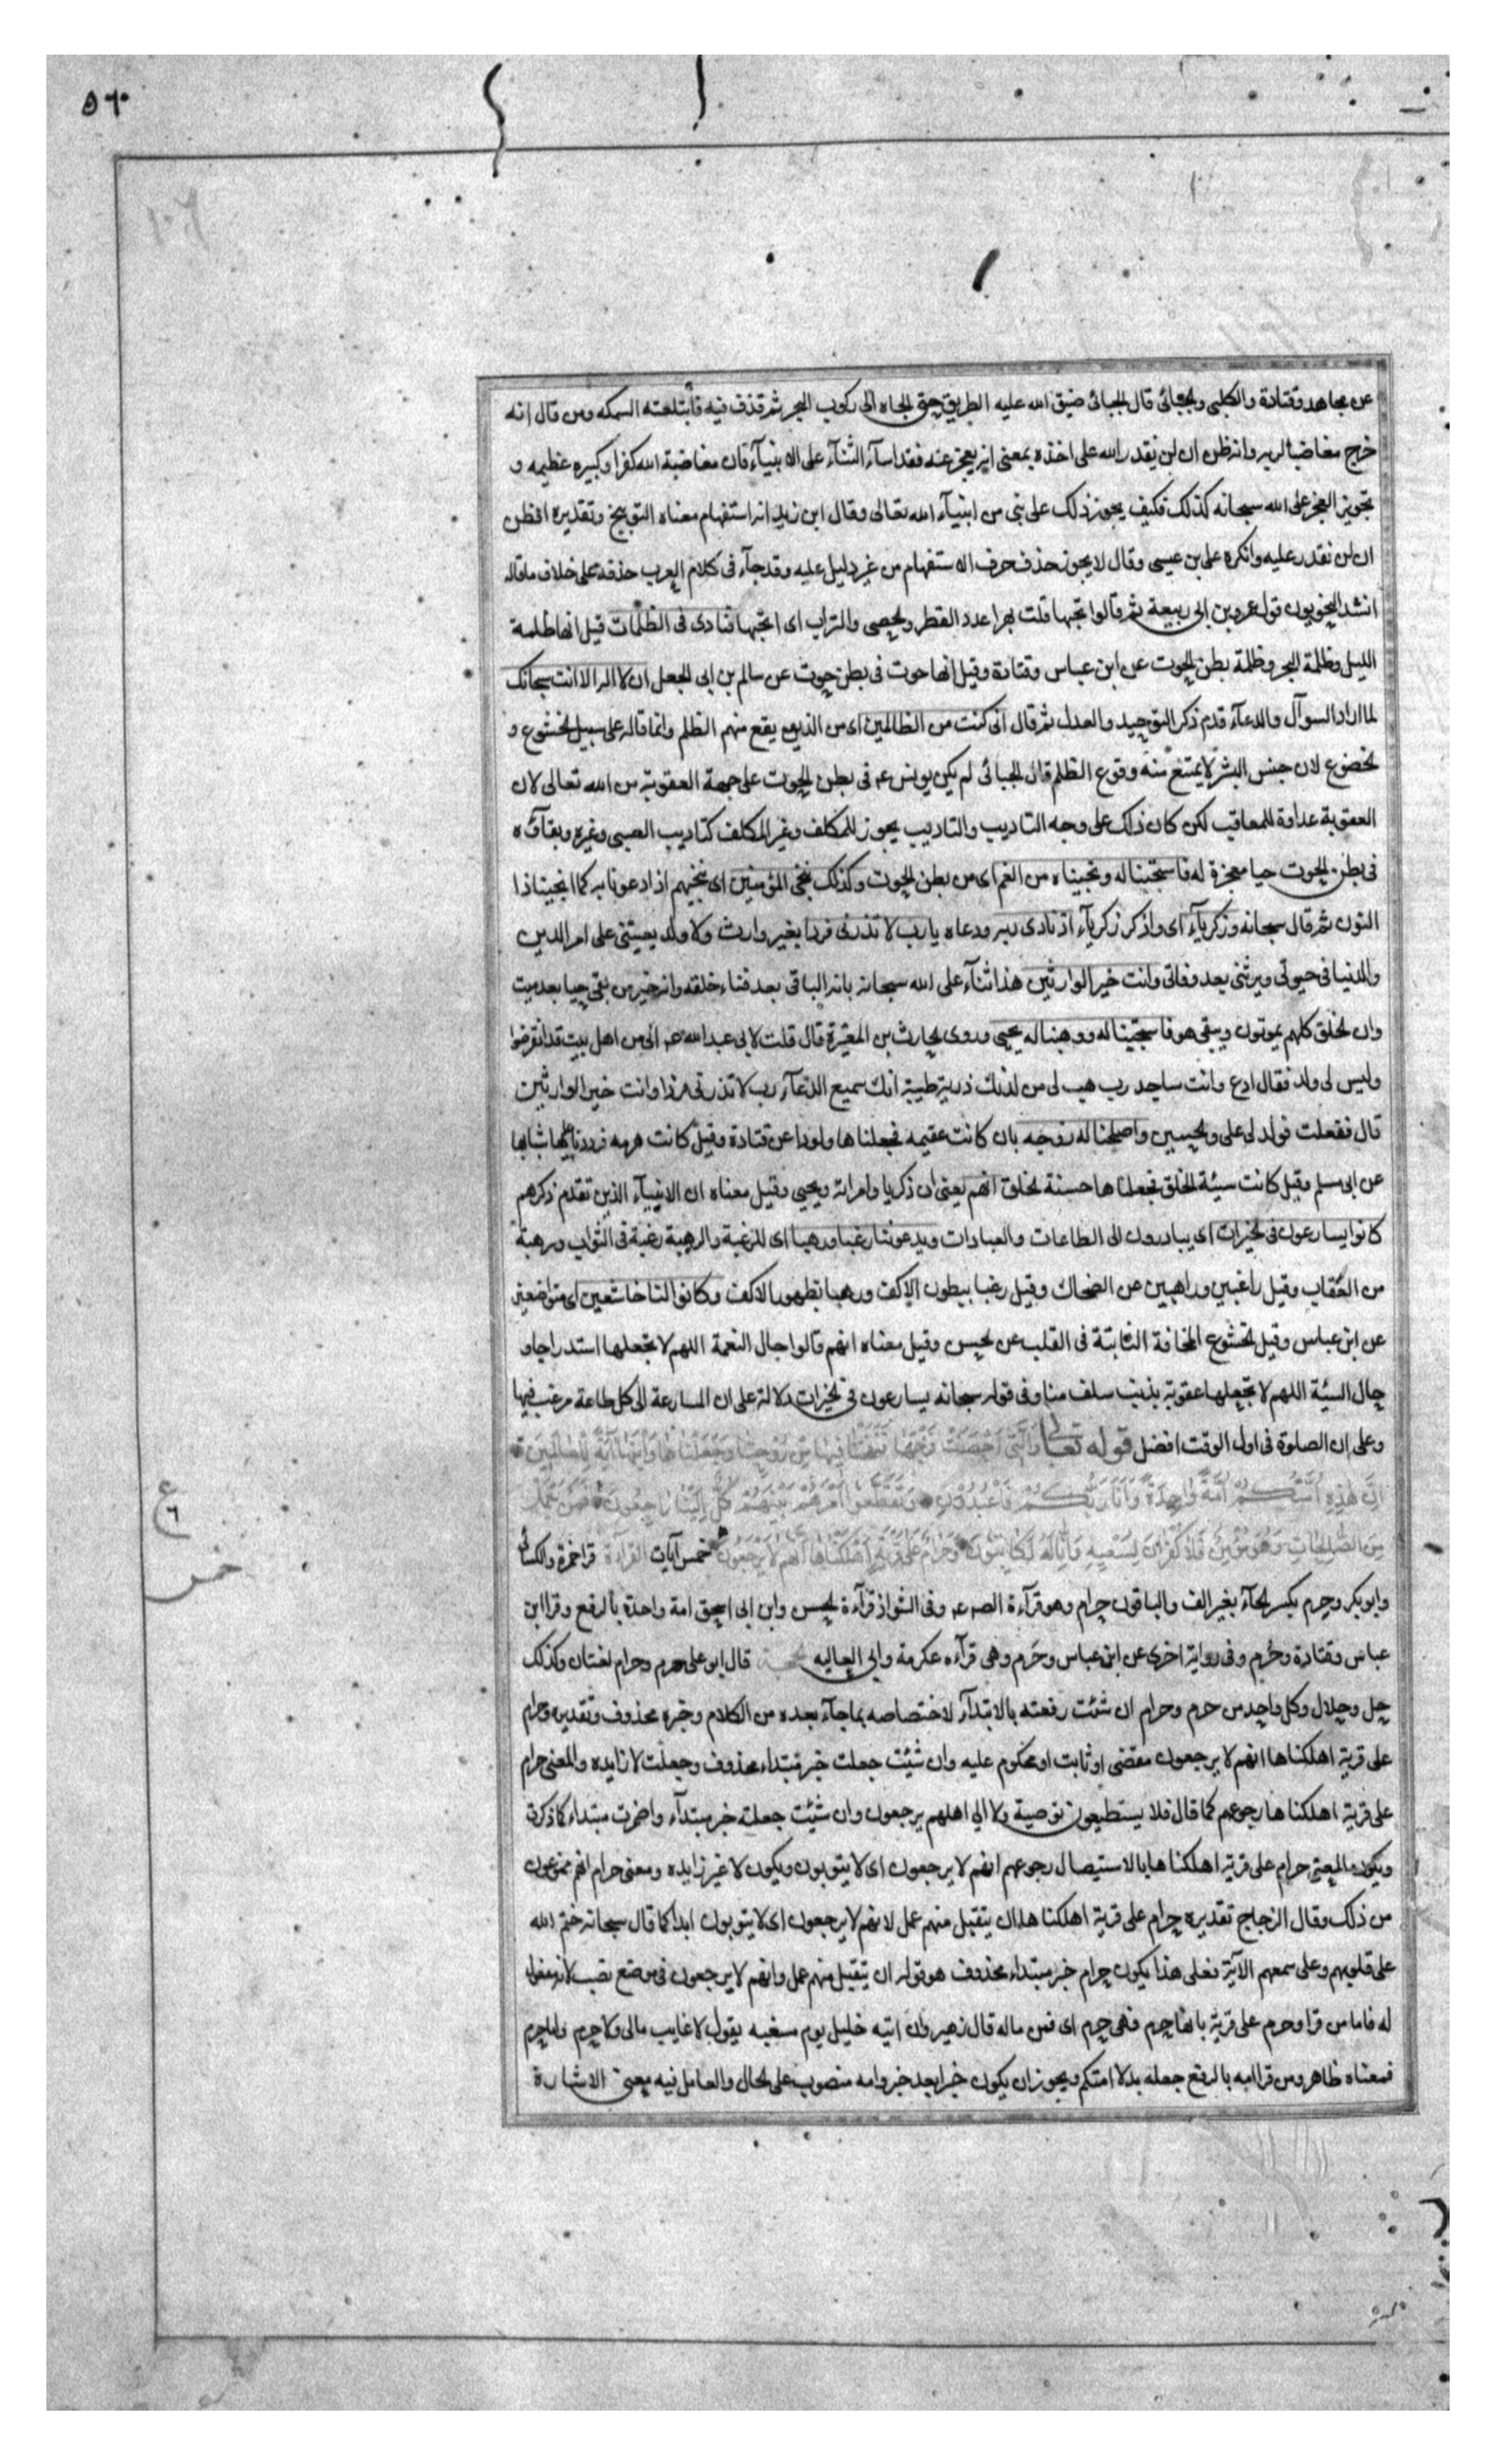 ٥٦٠
١٠٦
عن مجاهد وقتادة والكلبى والجبائى قال الجبائى ضيق الله عليه الطريق حتى الجاه الى ركوب البحر ثم قذف فيه فأبتلعته السمكه ومن قال انه
خرج مغاضبا لربه وانه ظن ان لن نقدر الله على اخذه بمعنى انه يعجز عنه فقد اسآء الثنآء على الانبيآء فان مغاضبة الله كفر او كبيره عظيمه و
تجويز العجز على الله سبحانه كذلك فكيف يجوز ذلك على نبى من انبيآء الله تعالى وقال ابن زيد انه استفهام معناه التوبيخ وتقديره افظن
ان لن نقدر عليه وانكره على بن عيسى وقال لا يجوز حذف حرف الاستفهام من غير دليل عليه وقد جآء فى كلام العرب حذفه على خلاف ما قاله
انشد النحويون قول عمر بن ابى ربيعة ثم قالوا تحبها قلت بهرا عدد القطر والحصى والتراب اى اتحبها فنادى فى الظلمات قيل انها ظلمة
الليل وظلمة البحر وظلمة بطن الحوت عن ابن عباس وقتادة وقيل انها حوت فى بطن حوت عن سالم بن ابى الجعد ان لا اله الا انت سبحانك
لما اراد السوآل والدعآء قدم ذكر التوحيد والعدل ثم قال انى كنت من الظالمين اى من الذين يقع منهم الظلم وانما قاله على سبيل الخشوع و
الخضوع لان جنس البشر لا يمتنع منه وقوع الظلم قال الجبائى لم يكن يونس عم فى بطن الحوت على جهة العقوبة من الله تعالى لان
العقوبة عداوة للمعاقب لكن كان ذلك على وجه التاديب والتاديب يجوز للمكلف وغير المكلف كتاديب الصبى وغيره وبقاؤه
فى بطن الحوت حيا معجزة له فاستجبنا له ونجيناه من الغم اى من بطن الحوت وكذلك ننجى المؤمنين اى ننجيهم اذا دعونا به كما انجينا ذا
النون ثم قال سبحانه وزكريآء اى واذكر زكريآء اذ نادى ربه ودعاه يا رب لا تذرنى فردا بغير وارث ولا ولد يعيننى على امر الدين
والدنيا فى حيوتى ويرثنى بعد وفاتى وانت خير الوارثين هذا ثنآء على الله سبحانه بانه الباقى بعد فناء خلقه وانه خير من بقى حيا بعد ميت
وان الخلق كلهم يموتون ويبقى هو فاستجبنا له ووهبنا له يحيى وروى الحارث بن المغيرة قال قلت لابى عبد الله عم انى من اهل بيت قد انقرضوا
وليس لى ولد فقال ادع وانت ساجد رب هب لى من لدنك ذرية طيبة انك سميع الدعآء رب لا تذرنى فردا وانت خير الوارثين
قال ففعلت فولد لى على والحسين واصلحنا له زوجه بان كانت عقيمه فجعلناها ولودا عن قتادة وقيل كانت هرمه فرددنا عليها شبابها
عن ابى مسلم وقيل كانت سيئة الخلق فجعلناها حسنة الخلق انهم يعنى ان زكريا وامراته ويحيى وقيل معناه ان الانبيآء الذين تقدم ذكرهم
كانوا يسارعون فى الخيرات اى يبادرون الى الطاعات والعبادات ويدعوننا رغبا ورهبا اى للرغبة والرهبة رغبة فى الثواب ورهبة
من العقاب وقيل راغبين وراهبين عن الضحاك وقيل رغبا ببطون الاكف ورهبا بظهور الاكف وكانوا لنا خاشعين اى متواضعين
عن ابن عباس وقيل الخشوع المخافة الثابتة فى القلب عن الحسن وقيل معناه انهم قالوا حال النعمة اللهم لا تجعلها استدراجا و
حال السيئة اللهم لا تجعلها عقوبة بذنب سلف منا وفى قوله سبحانه يسارعون فى الخيرات دلالة على ان المسارعة الى كل طاعة مرغب فيها
وعلى ان الصلوة فى اول الوقت افضل قوله تعالى وَالَّتِى اَحْصَنَتْ فَرْجَهَا فَنَفَخْنَا فِيهَا مِنْ رُوحِنَا وَجَعَلْنَاهَا وَابْنَهَا آيَةً لِلْعَالَمِينَ
اِنَّ هٰذِهِ اُمَّتُكُمْ اُمَّةً وَاحِدَةً وَاَنَا رَبُّكُمْ فَاعْبُدُونِ وَتَقَطَّعُوا اَمْرَهُمْ بَيْنَهُمْ كُلٌّ اِلَيْنَا رَاجِعُونَ فَمَنْ يَعْمَلْ
مِنَ الصَّالِحَاتِ وَهُوَ مُؤْمِنٌ فَلَا كُفْرَانَ لِسَعْيِهِ وَاِنَّا لَهُ كَاتِبُونَ وَحَرَامٌ عَلَى قَرْيَةٍ اَهْلَكْنَاهَا اَنَّهُمْ لَا يَرْجِعُونَ خمس آيات القرآءة قرا حمزة والكسائى
وابو بكر وحرم بكسر الحآء بغير الف والباقون حرام وهو قرآءة الصـ عم وفى الشواذ قرآءة الحسن وابن ابى اسحق امة واحدة بالرفع وقرا ابن
عباس وقتادة وحُرم وفى رواية اخرى عن ابن عباس وحَرم وهى قرآءه عكرمة وابى العاليه الحجة قال ابو على حرم وحرام لغتان وكذلك
حل وحلال وكل واحد من حرم وحرام ان شئت رفعته بالابتدآء لاختصاصه بما جآء بعده من الكلام وخبره محذوف وتقديره وحرام
على قرية اهلكناها انهم لا يرجعون مقضى او ثابت او محكوم عليه وان شئت جعلت خبر مبتداء محذوف وجعلت لا زايده والمعنى حرام
على قرية اهلكناها رجوعهم كما قال فلا يستطيعون توصية ولا الى اهلهم يرجعون وان شئت جعلته خبر مبتدآء واضمرت مبتداء كما ذكرنا
ويكون المعنى حرام على قرية اهلكناها بالاستيصال رجوعهم انهم لا يرجعون اى لا يتوبون ويكون لا غير زايده ومعنى حرام انهم ممنوعون
من ذلك وقال الزجاج تقديره حرام على قرية اهلكناها ان يتقبل منهم عمل لانهم لا يرجعون اى لا يتوبون ابدا كما قال سبحانه ختم الله
على قلوبهم وعلى سمعهم الآية فعلى هذا يكون حرام خبر مبتداء محذوف هو قوله ان يتقبل منهم عمل وانهم لا يرجعون فى موضع نصب لانه مفعول
له فاما من قرا وحرم على قرية فهى حرم اى قمن ماله قال زهير وان اتيه خليل يوم مسغبه يقول لا غايب مالى ولا حرم واما حرم
فمعناه ظاهر ومن قرا امه بالرفع جعله بدلا امتكم ويجوز ان يكون خبرا بعد خبر وامه منصوب على الحال والعامل فيه معنى الاشارة
ع
٦
خمس